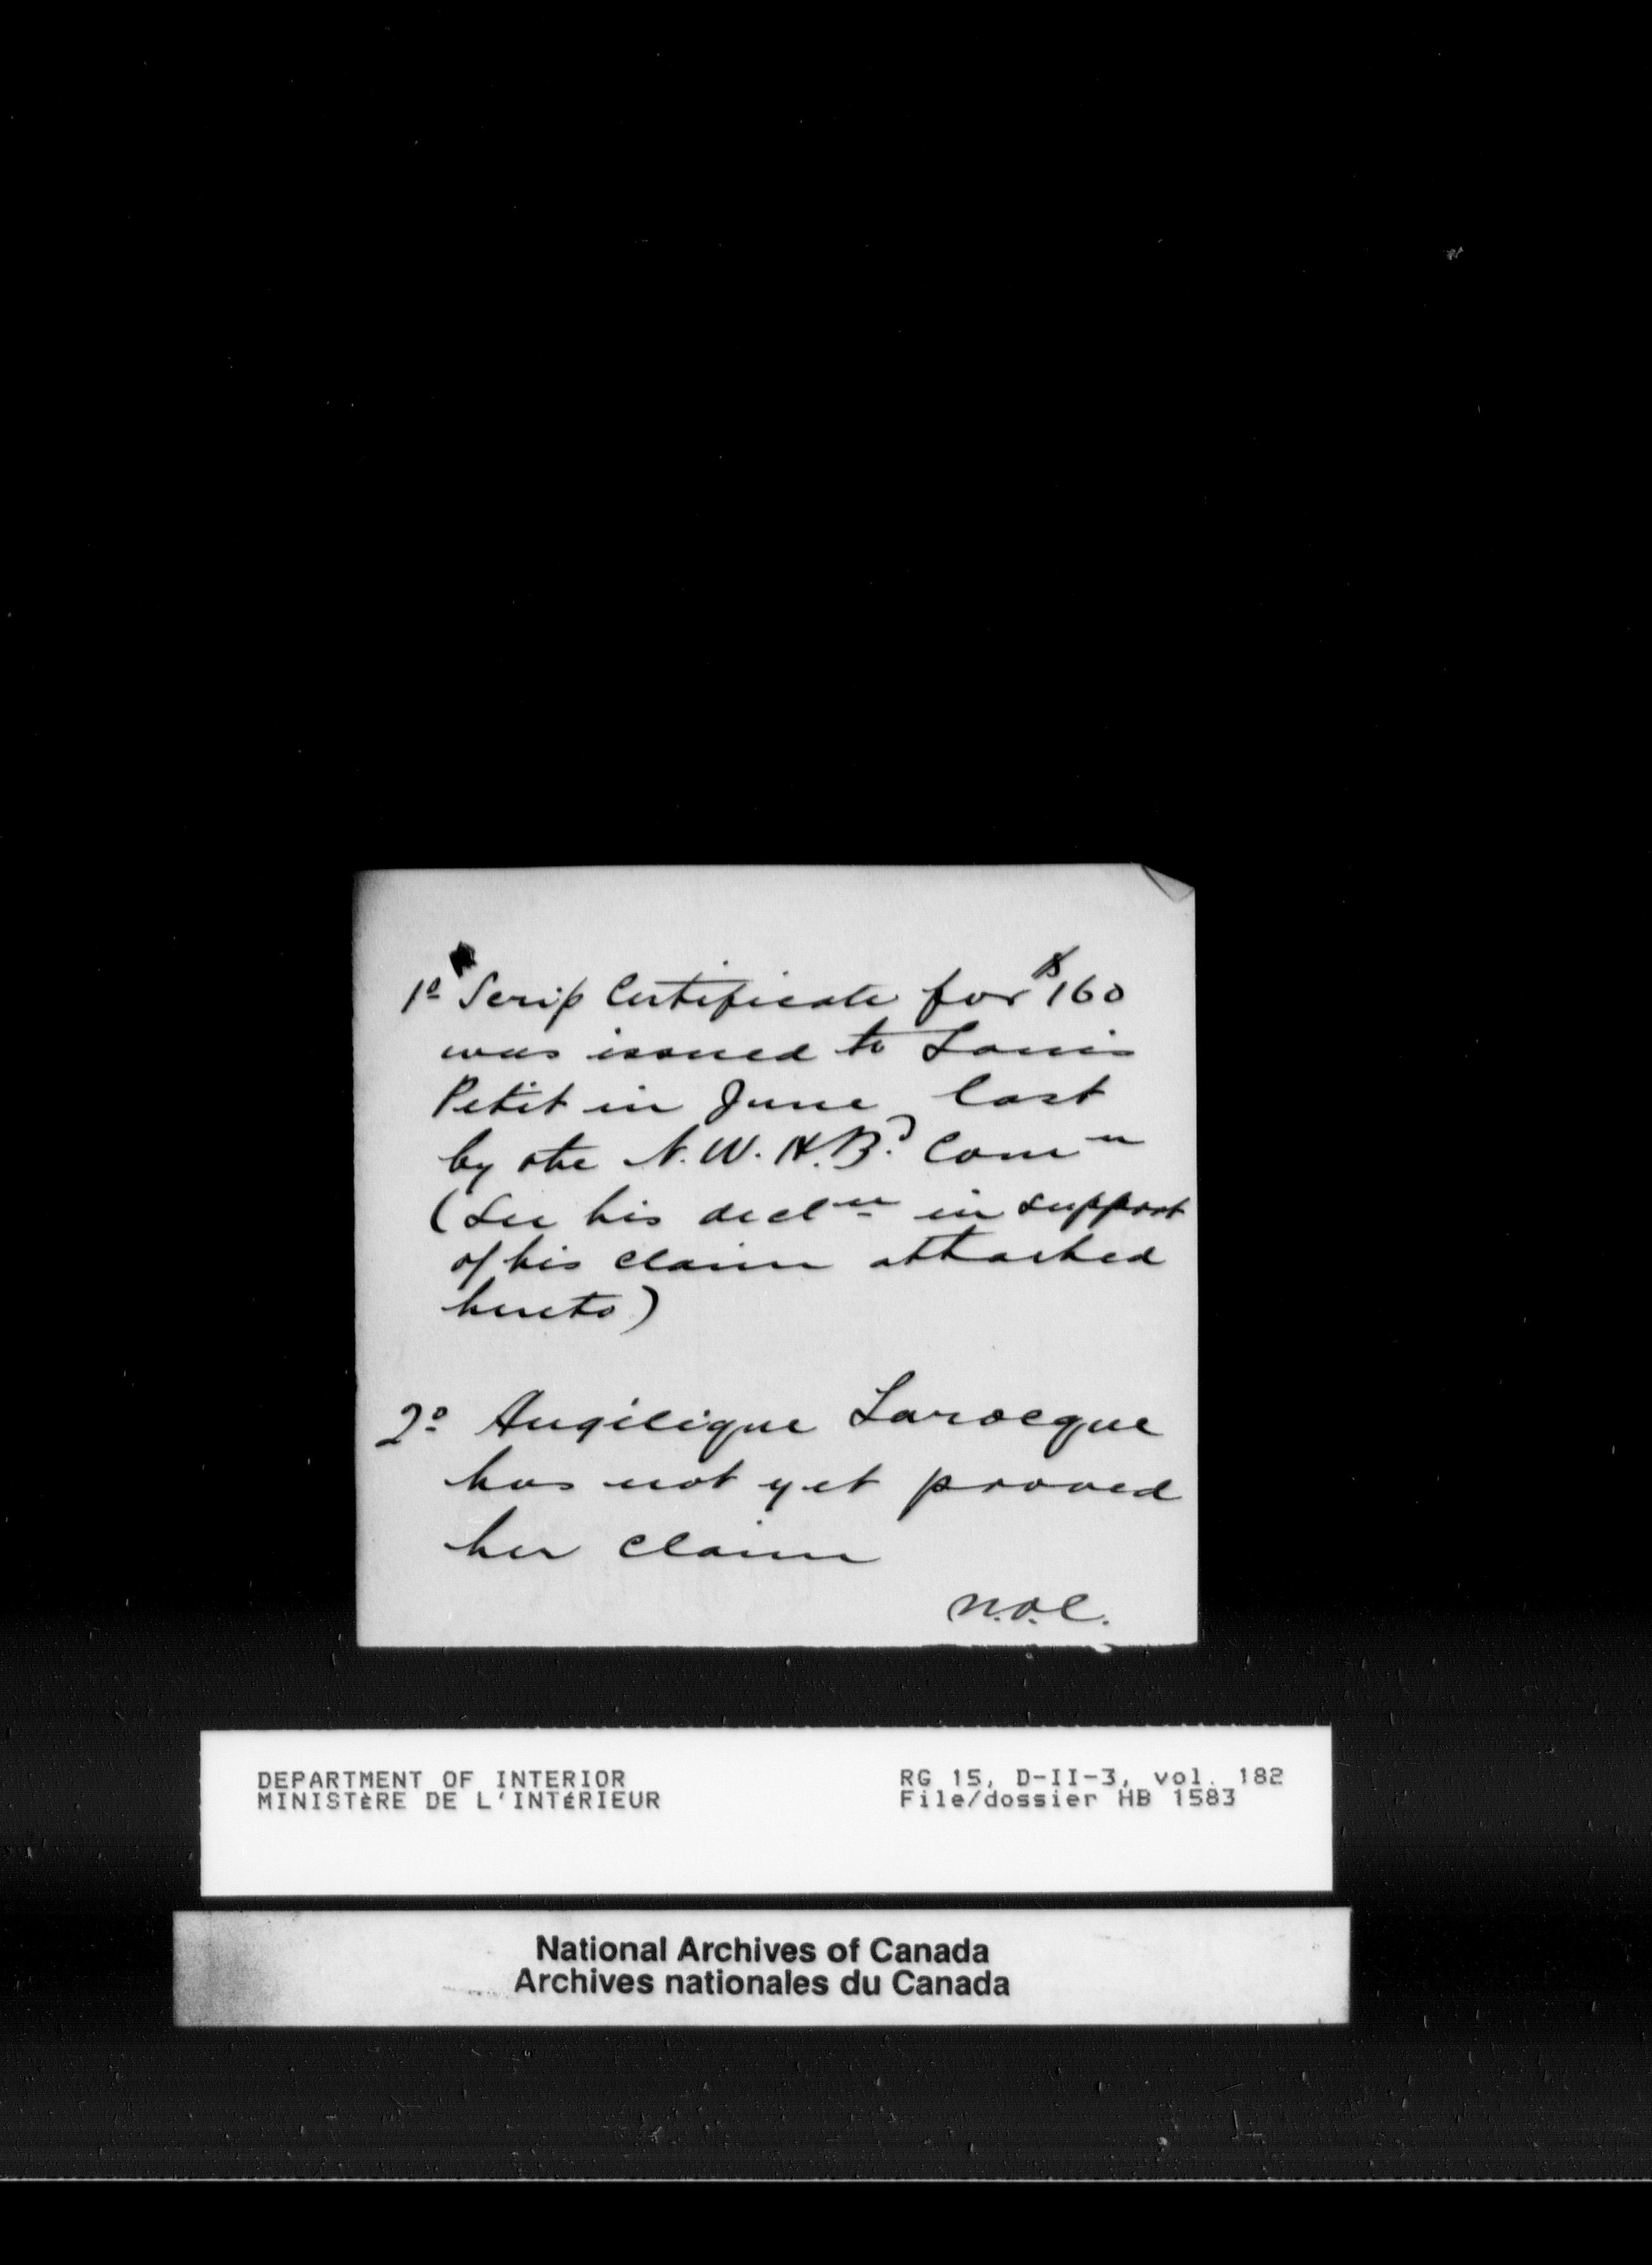 1º Scrip Certificate for $160
was issued to Louis
Petit in June last
by the N.W.H.B. Comⁿ
(See his declⁿ in support
of his claim attached
hereto)
2º Angélique Larocque
has not yet proved
her claim
N.O.C.
DEPARTMENT OF INTERIOR
MINISTÈRE DE L'INTÉRIEUR
RG 15, D-II-3, vol. 182
File/dossier HB 1583
National Archives of Canada
Archives nationales du Canada